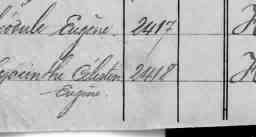 Eugène 2417
Hyacinthe Célestin 2418
Eugène.